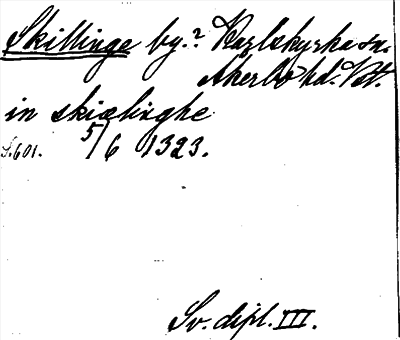 Skillinge by.? Karlskyrka sn.
Åkerbo hd. Vstl.
in skiælinghe
S. 601. 5/6 1323.
Sv. dipl. III.